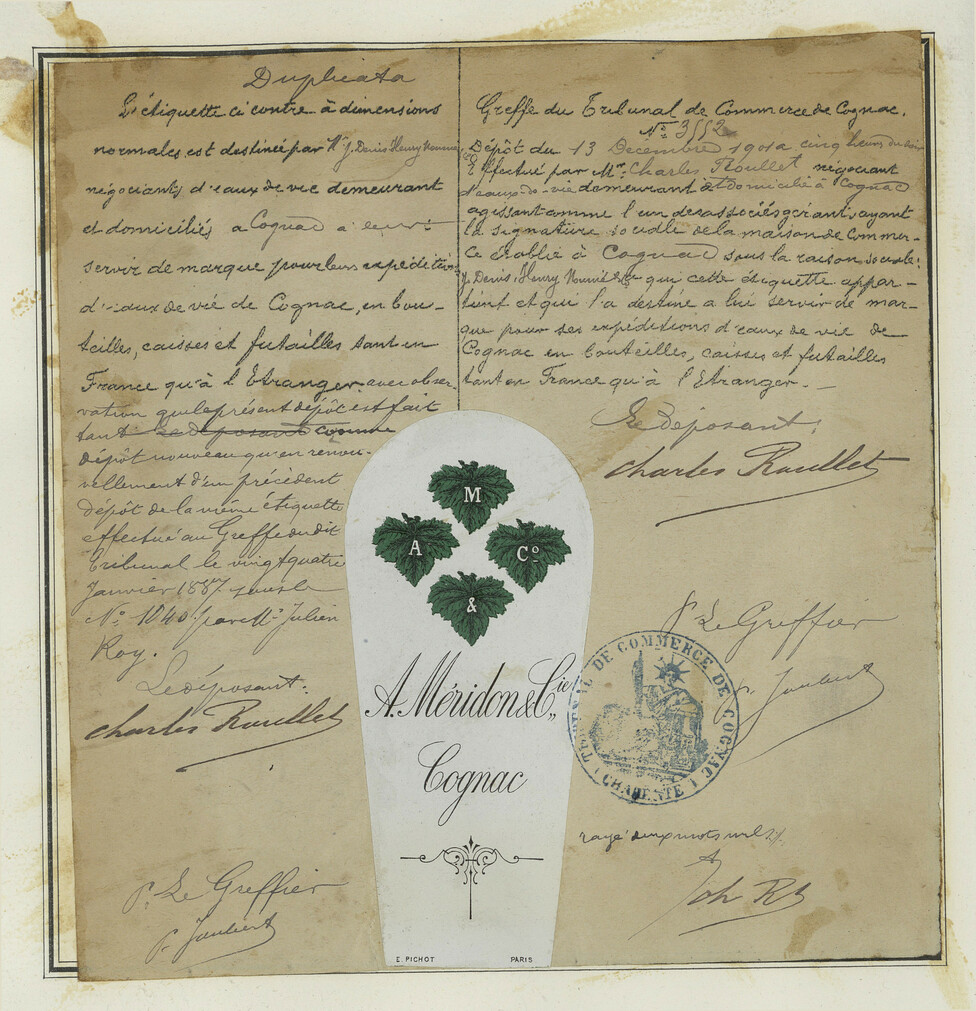 Duplicata
L'étiquette ci contre à dimensions
normales est destinée par Mrs J. Denis Henry Mounié
négociants d'eaux de vie demeurant
et domiciliés à Cognac à leur
servir de marque pour leurs expéditions
d'eaux de vie de Cognac, en bou-
teilles, caisses et futailles tant en
France qu'à l'Etranger avec obser-
vation que le présent dépôt est fait
tant le déposant comme
dépôt nouveau qu'en renou-
vellement d'un précédent
dépôt de la même étiquette
effectué au Greffe du dit
Tribunal le vingt quatre
Janvier 1887 sous le
No 1040 par Mr Julien
Roy.
Le déposant:
Charles Roullet
P. Le Greffier
P. Joubert
Greffe du Tribunal de Commerce de Cognac.
No 3552
Dépôt du 13 Décembre 1901 à cinq heures du soir
Effectué par Mr Charles Roullet négociant
d'eaux-de-vie demeurant et domicilié à Cognac
agissant comme l'un des associés gérants, ayant
la signature sociale de la maison de Commer-
ce établie à Cognac sous la raison sociale:
J. Denis, Henry Mounié & Cie que cette étiquette appar-
tient et qui l'a destiné a lui servir de mar-
que pour ses expéditions d'eaux de vie de
Cognac en bouteilles, caisses et futailles
tant en France qu'à l'Etranger.
Le Déposant:
Charles Roullet
P. Le Greffier
P. Joubert
TRIBUNAL DE COMMERCE DE COGNAC
(CHARENTE)
rayé deux mots nuls
M
A
Co
&
A. Méridon & Cie
Cognac
E. PICHOT
PARIS